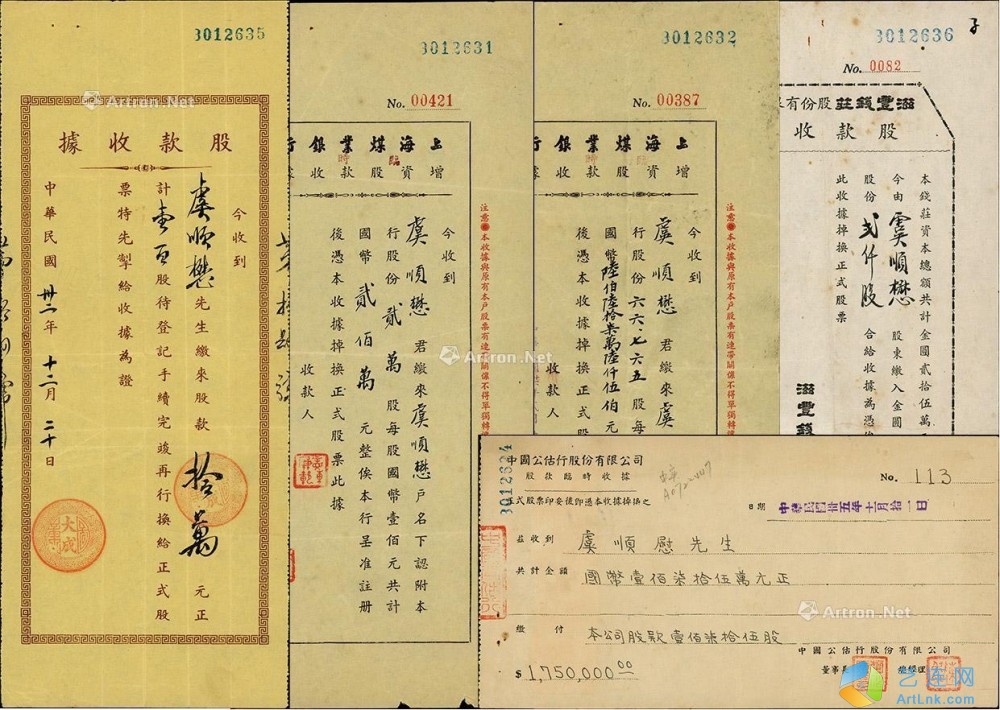 3012635
股款收據
今收到
虞順懋先生繳來股款拾萬元正
計壹百股待登記手續完竣再行換給正式股
票特先掣給收據為證
中華民國卅二年十二月二十日
大成
3012631
No. 00421
上海煤業銀行
增資股款臨時收據
今收到
虞順懋君繳來虞順懋戶名下認附本
行股份貳萬股每股國幣壹佰元共計
國幣貳佰萬元整俟本行呈准註冊
後憑本收據掉換正式股票此據
收款人
注意●本收據與原有本戶股票有連帶關係不得單獨轉
3012632
No. 00387
上海煤業銀行
增資股款臨時收
今收到
虞順懋君繳來虞
行股份六六七六五股每
國幣陸佰陸拾柒萬陸仟伍佰元
後憑本收據掉換正式股
收款人
注意●本收據與原有本戶股票有連帶關係不得單獨轉
3012636
No. 0082
滋豐錢莊股份有
股款收
本錢莊資本總額共計金圓貳拾伍萬
今由虞順懋股東繳入金圓
股份貳仟股合給收據為憑
此收據掉換正式股票
滋豐錢
3012634
中國公估行股份有限公司
股款臨時收據
No. 113
式股票印妥後卽憑本收據掉換之
日期 中華民國卅五年十一月拾日
茲收到 虞順慰先生
共計金額 國幣壹佰柒拾伍萬元正
繳付 本公司股款壹佰柒拾伍股
中國公估行股份有限公司
$ 1,750,000.00
董事長 總經理
Artron.Net
Artron.Net
Artron.Net
艺连网
ArtLnk.com